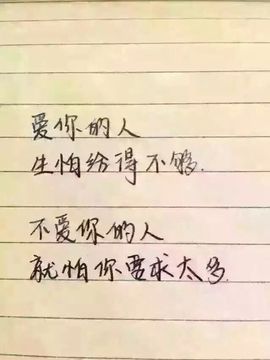 爱你的人
生怕给得不够.
不爱你的人
就怕你要求太多.